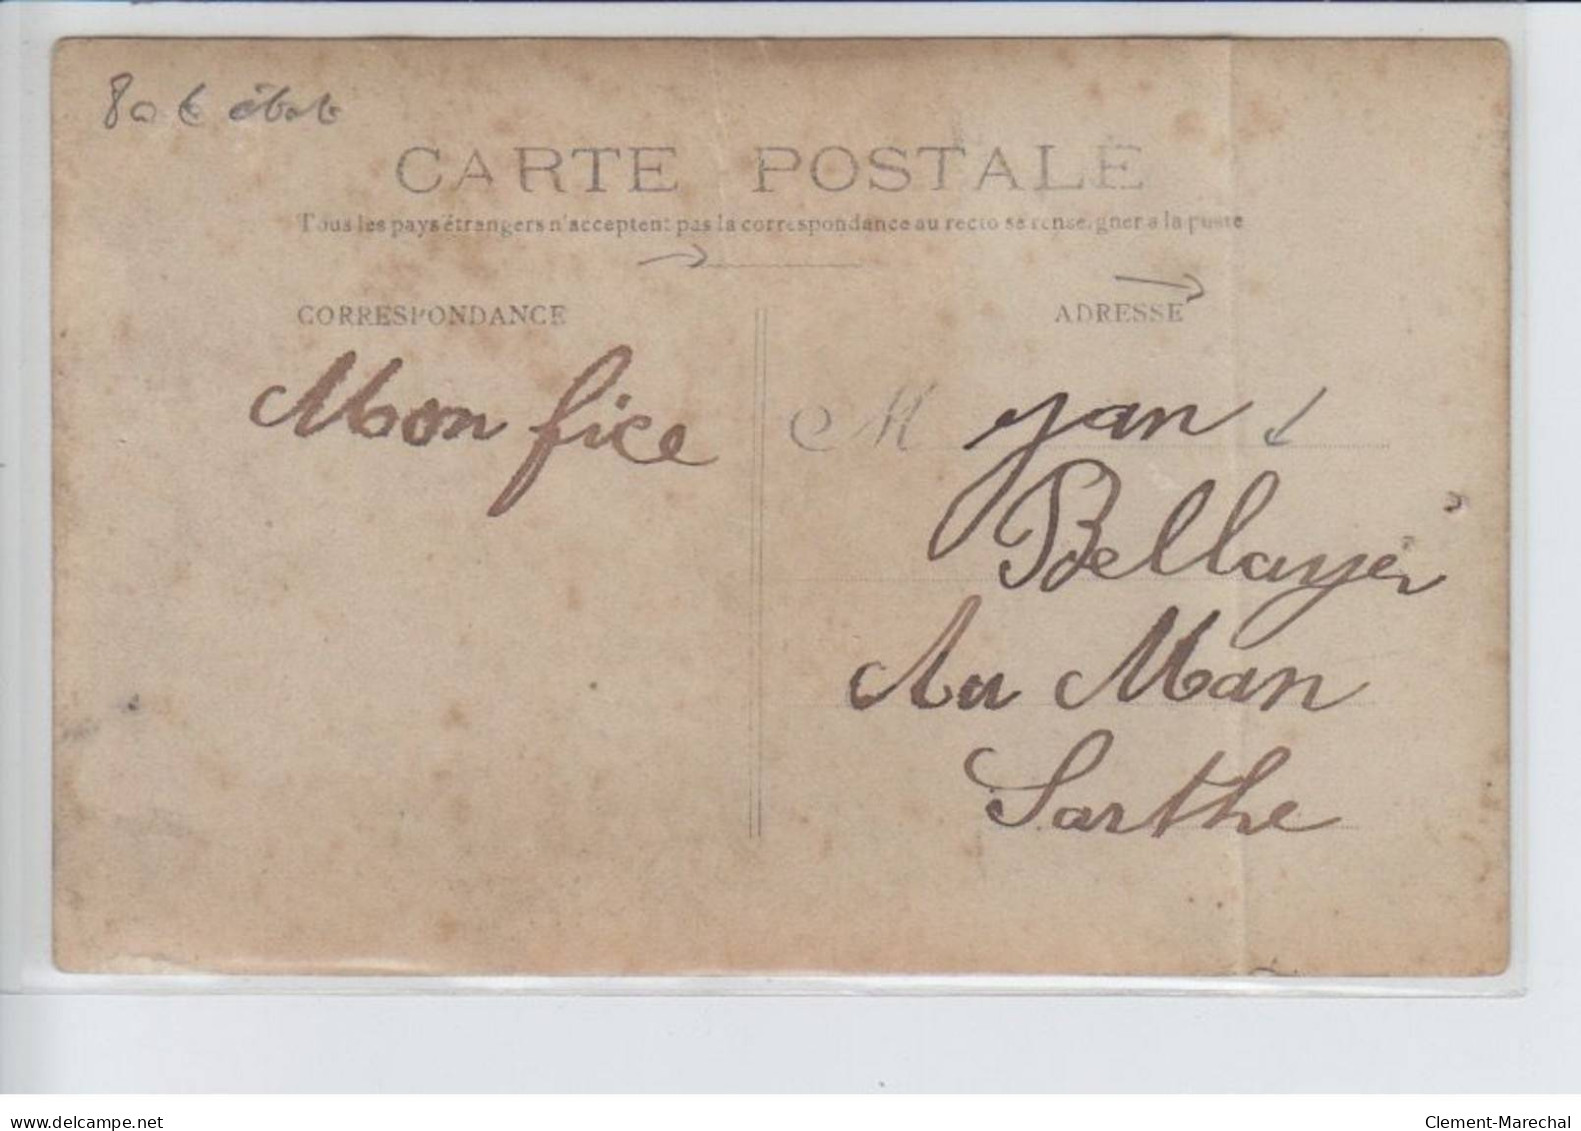 80 € état
CARTE POSTALE
Tous les pays étrangers n'acceptent pas la correspondance au recto se renseigner a la poste
CORRESPONDANCE
ADRESSE
Mon fice
M yan
Bellayer
Au Man
Sarthe
www.delcampe.net
Clement-Marechal